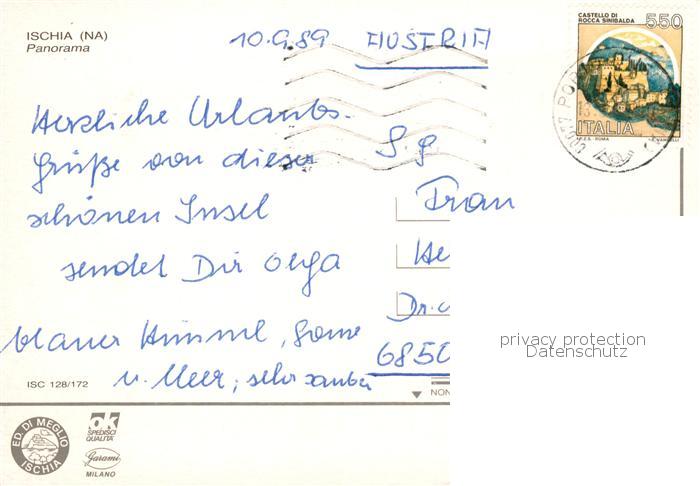 ISCHIA (NA)
Panorama
10.9.89 AUSTRIA
CASTELLO DI
ROCCA SINIBALDA
550
ITALIA
I.P.Z.S. ROMA
Herzliche Urlaubs-
grüße von dieser
schönen Insel
sendet Dir Olga
blauer Himmel, Sonne
u. Meer, sehr sauber
S. g.
Frau
He
Dr.
6850
privacy protection
Datenschutz
ISC 128/172
NON
ED. DI MEGLIO
ISCHIA
ok
SPEDISCI
QUALITÀ
Garami
MILANO